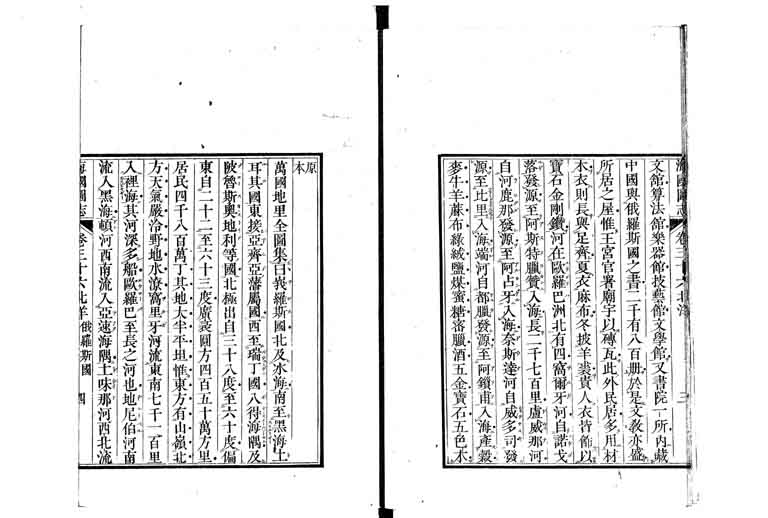 海國圖志 卷三十六 北洋 三
文館算法館樂器館技藝館文學館又書院一所內藏
中國與俄羅斯國之書二千有八百册於是文教亦盛
所居之屋惟王宮官署廟宇以磚瓦此外民居多用材
木衣則長與足齊夏衣麻布冬披羊裘貴人衣皆飾以
寶石金剛鑽河在歐羅巴洲北有四窩爾牙河自諾戈
落發源至阿斯特臘贊入海長二千七百里盧威那河
自河鹿那發源至阿占牙入海奈斯達河自威多司發
源至比里入海端河自都臘發源至阿鎖甫入海產穀
麥牛羊蔴布綠絨鹽煤蜜糖密臘酒五金寶石五色木
原本
萬國地里全圖集曰峩羅斯國北及氷海南至黑海土
耳其國東接亞齊亞藩屬國西至瑞丁國八得海隅及
陂魯斯奧地利等國北極出自三十八度至六十度偏
東自二十二至六十三度廣袤圓方四百五十萬方里
居民四千八百萬丁其地大半平坦惟東方有山嶺北
方天氣嚴冷野地水潦窩里牙河流東南七千一百里
入裡海其河深多船歐羅巴至長之河也地尼伯河南
流入黑海頓河西南流入亞速海隅土味那河西北流
海國圖志 卷三十六 北洋 俄羅斯國 四